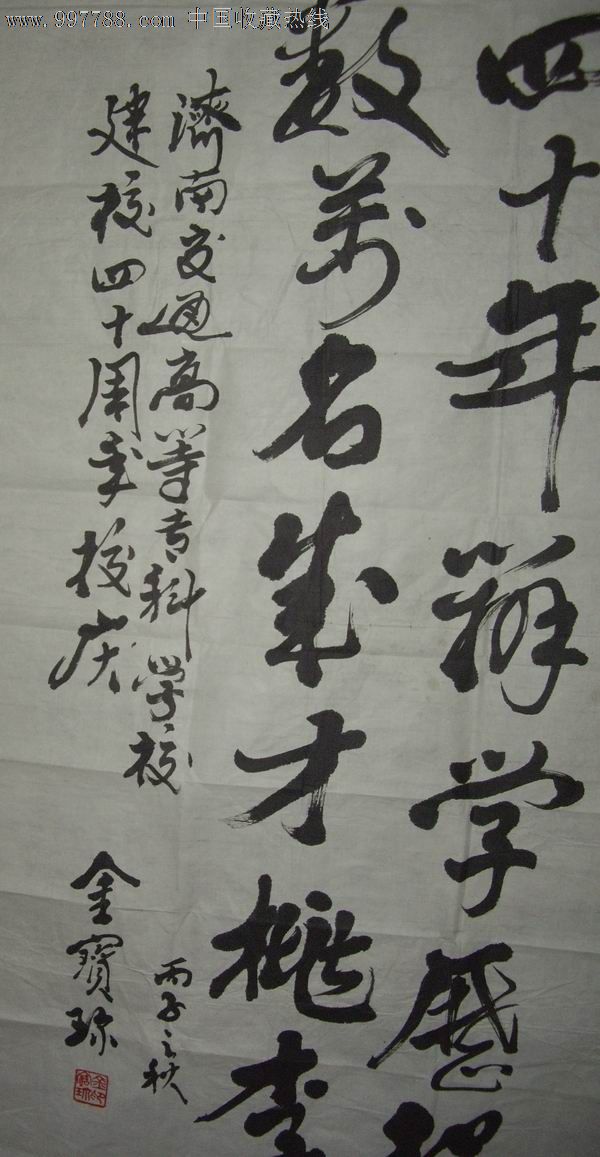 www.997788.com 中国收藏热线
四十年辦学歷
数萬名成才桃李
濟南交通高等专科学校
建校四十周年校庆
丙子之秋
金寶珍